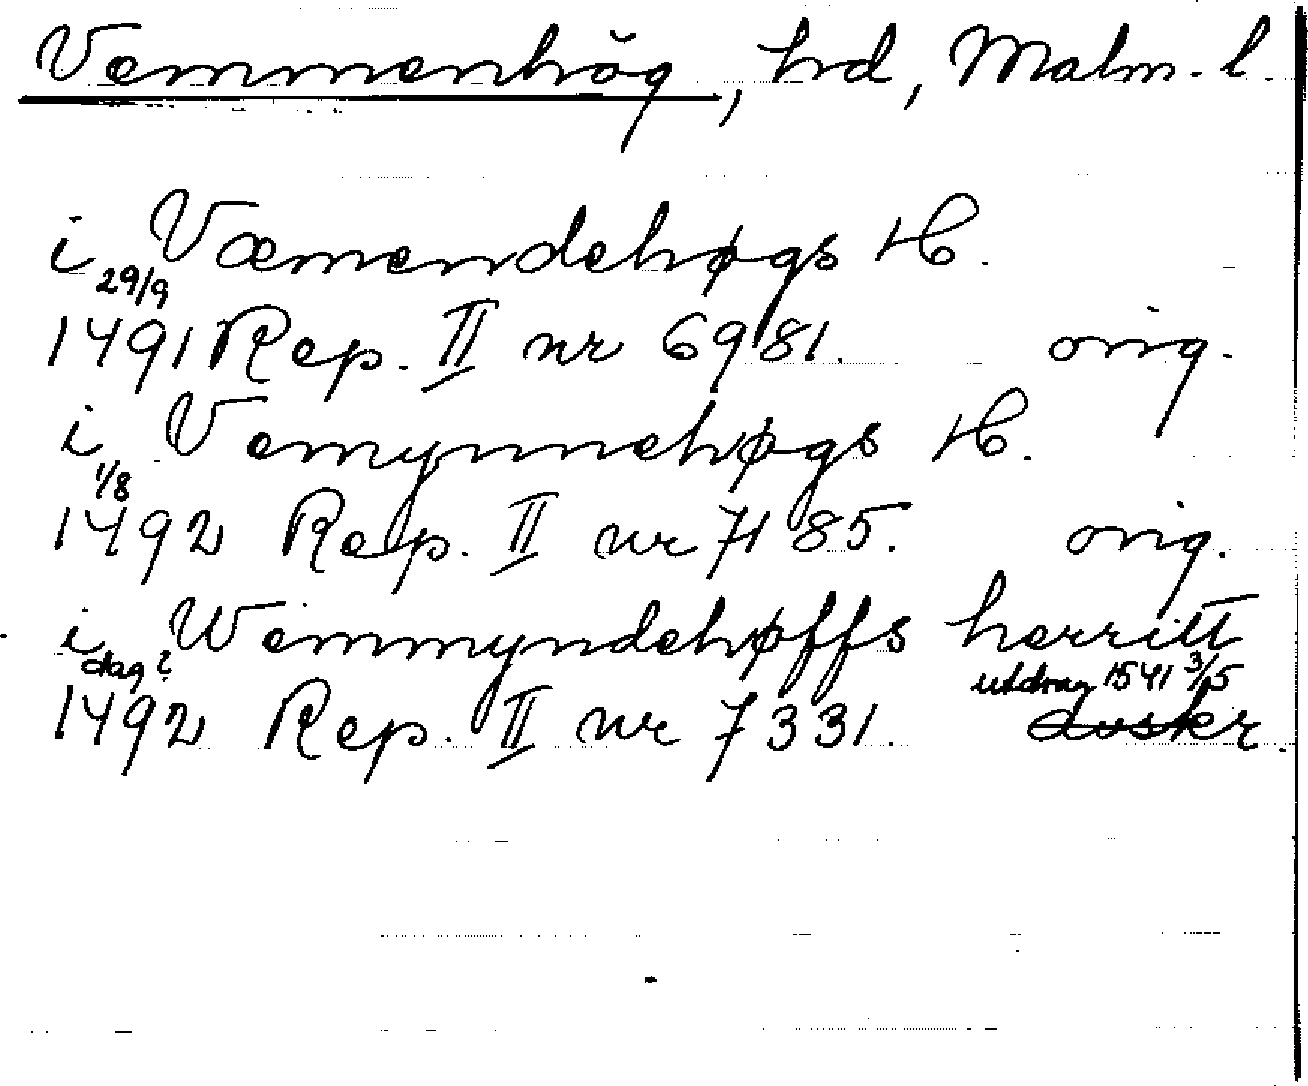 Vemmenhög, hrd, Malm. l.
i Væmendehøgs H.
29/9
1491 Rep. II nr 6981. orig.
i Vemynnehøgs H.
1/8
1492 Rep. II nr 7185. orig.
i Wemmyndehøffs herritt
dag? utdrag 1541 3/5
1492 Rep. II nr 7331. avskr.